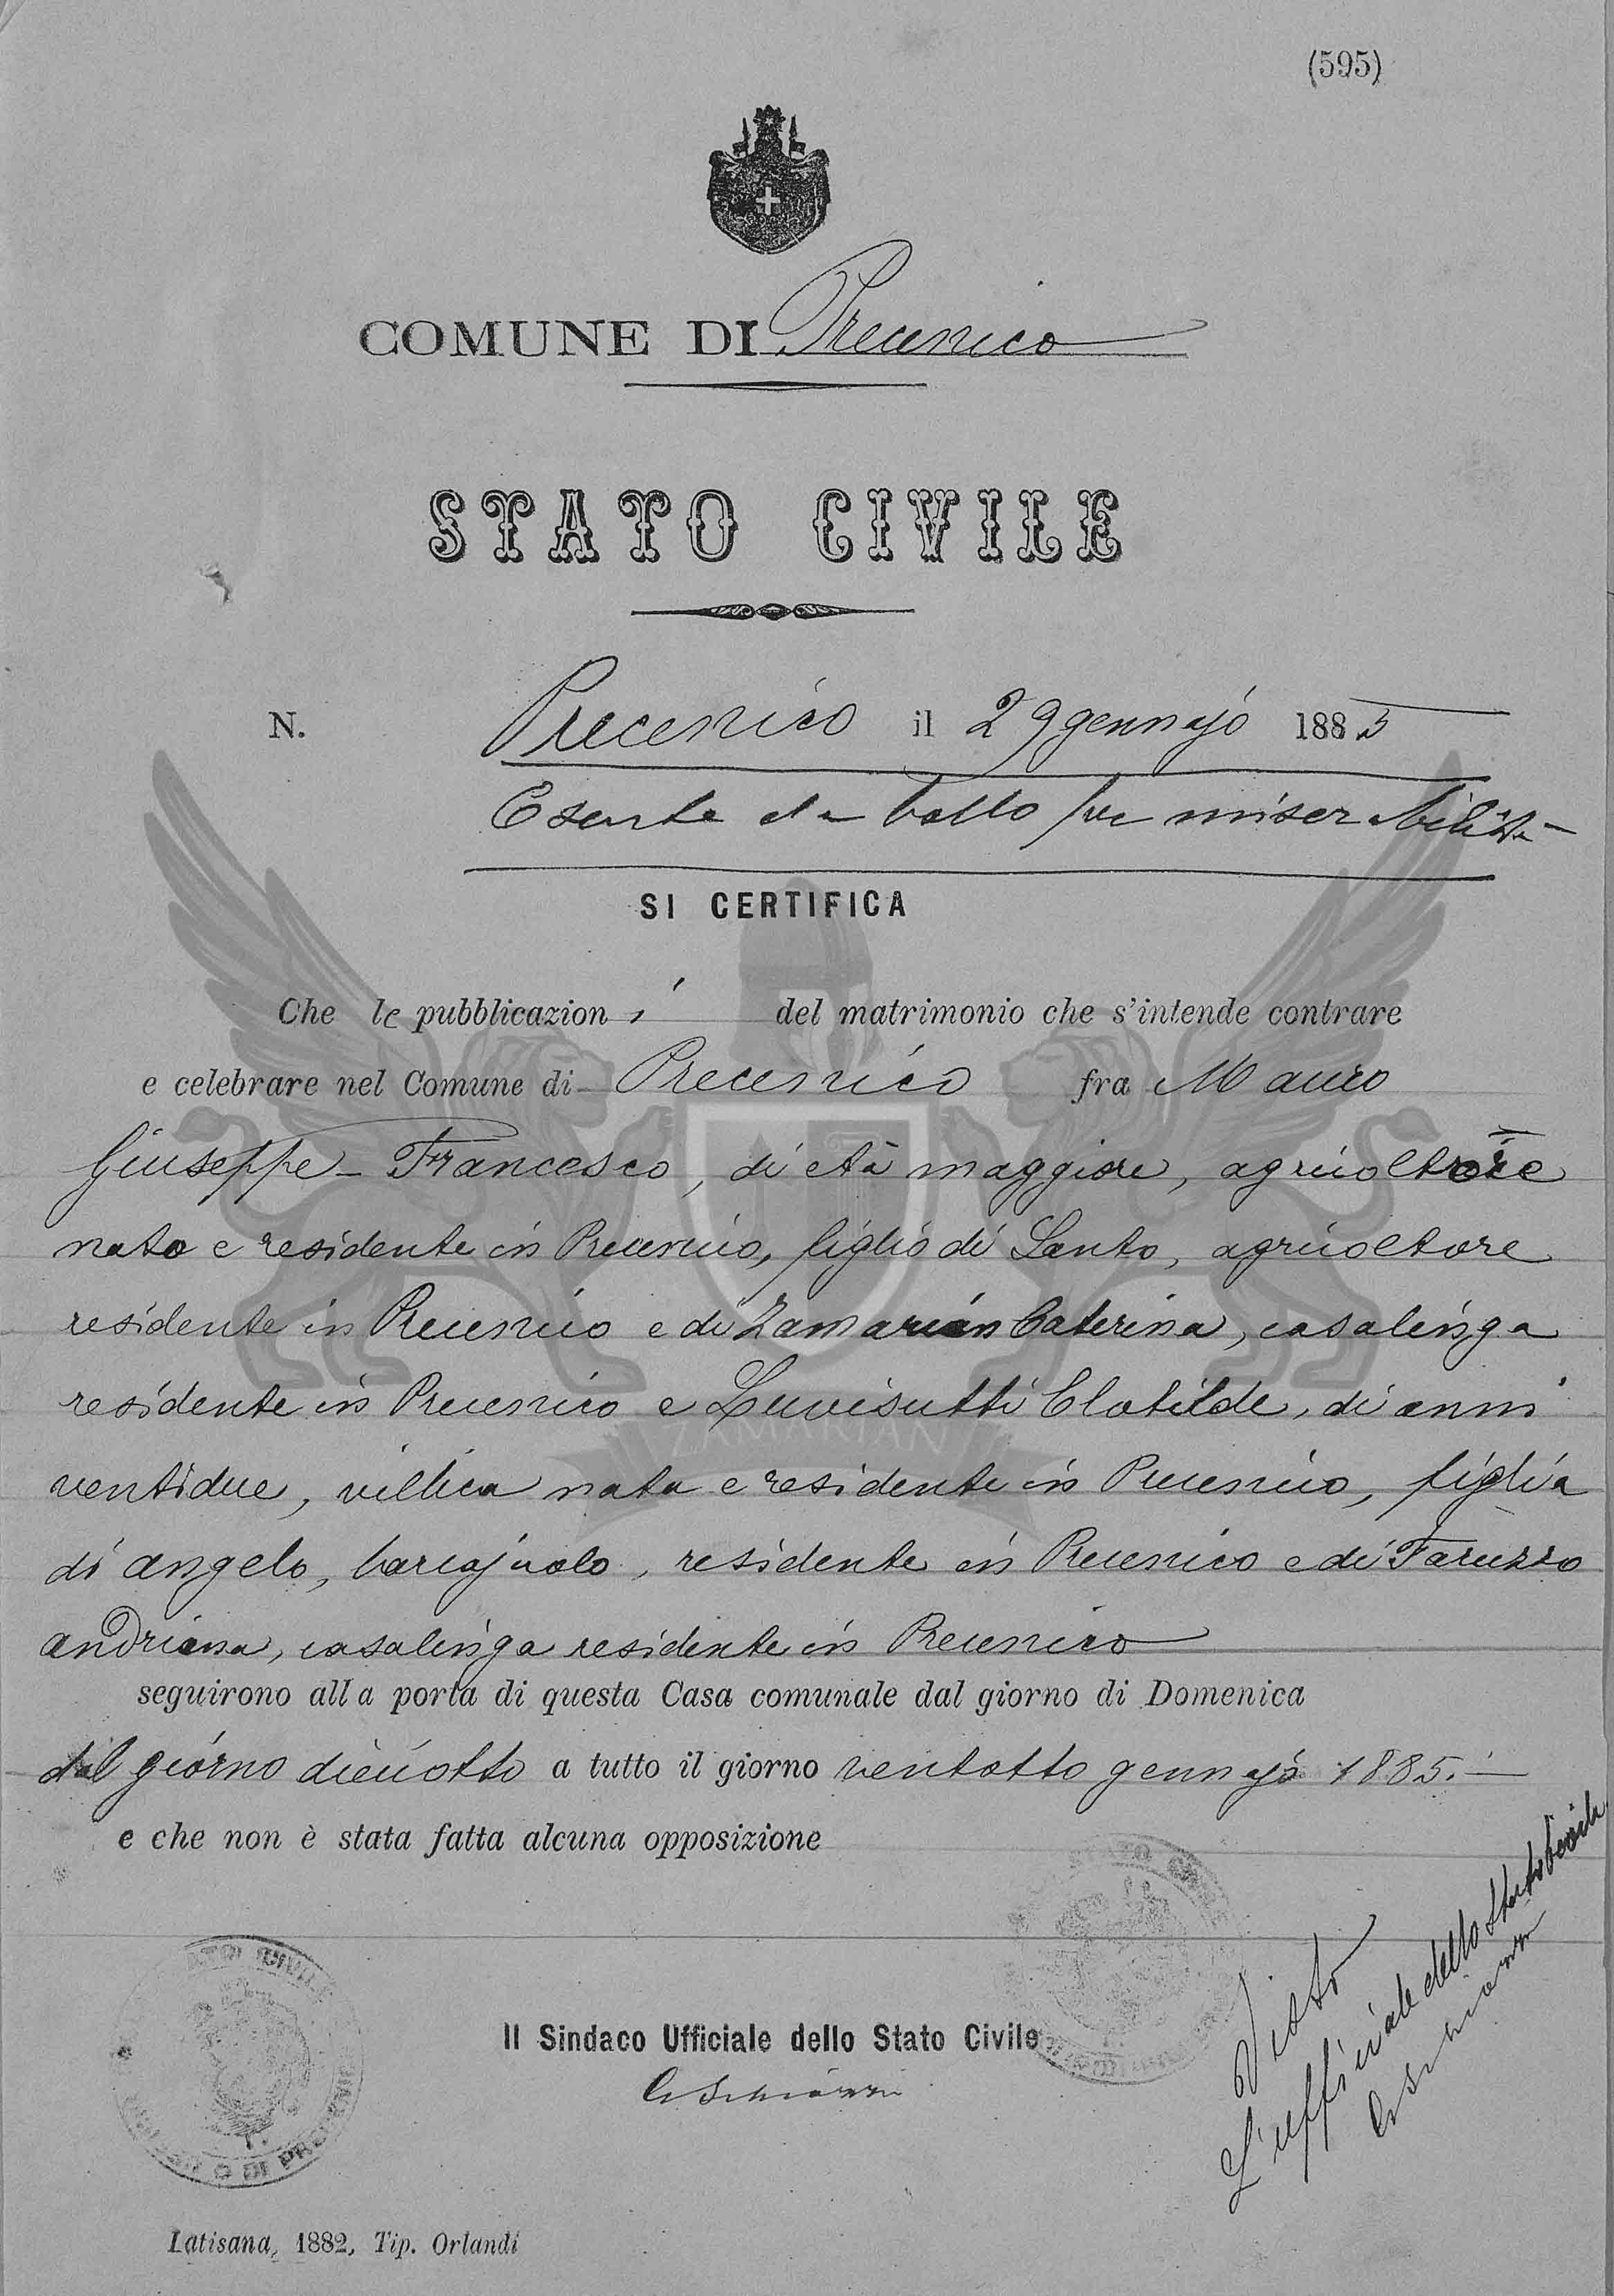 (595)
COMUNE DI Precenico
STATO CIVILE
N. Precenico il 29 gennajo 1885
Esente da bollo per miserabilità
SI CERTIFICA
Che le pubblicazioni del matrimonio che s'intende contrare
e celebrare nel Comune di Precenico fra Mauro
Giuseppe - Francesco, di età maggiore, agricoltore
nato e residente in Precenico, figlio di Santo, agricoltore
residente in Precenico e di Zamarian Caterina, casalinga
residente in Precenico e Luvisutti Clotilde, di anni
ZAMARIAN
ventidue, villica nata e residente in Precenico, figlia
di Angelo, barcajuolo, residente in Precenico e di Faruzzo
Andriana, casalinga residente in Precenico
seguirono alla porta di questa Casa comunale dal giorno di Domenica
dal giorno dieciotto a tutto il giorno ventotto gennajo 1885.
e che non è stata fatta alcuna opposizione
STATO CIVILE
Visto
L'uffiziale dello Stato Civile
Il Sindaco Ufficiale dello Stato Civile
Latisana, 1882, Tip. Orlandi